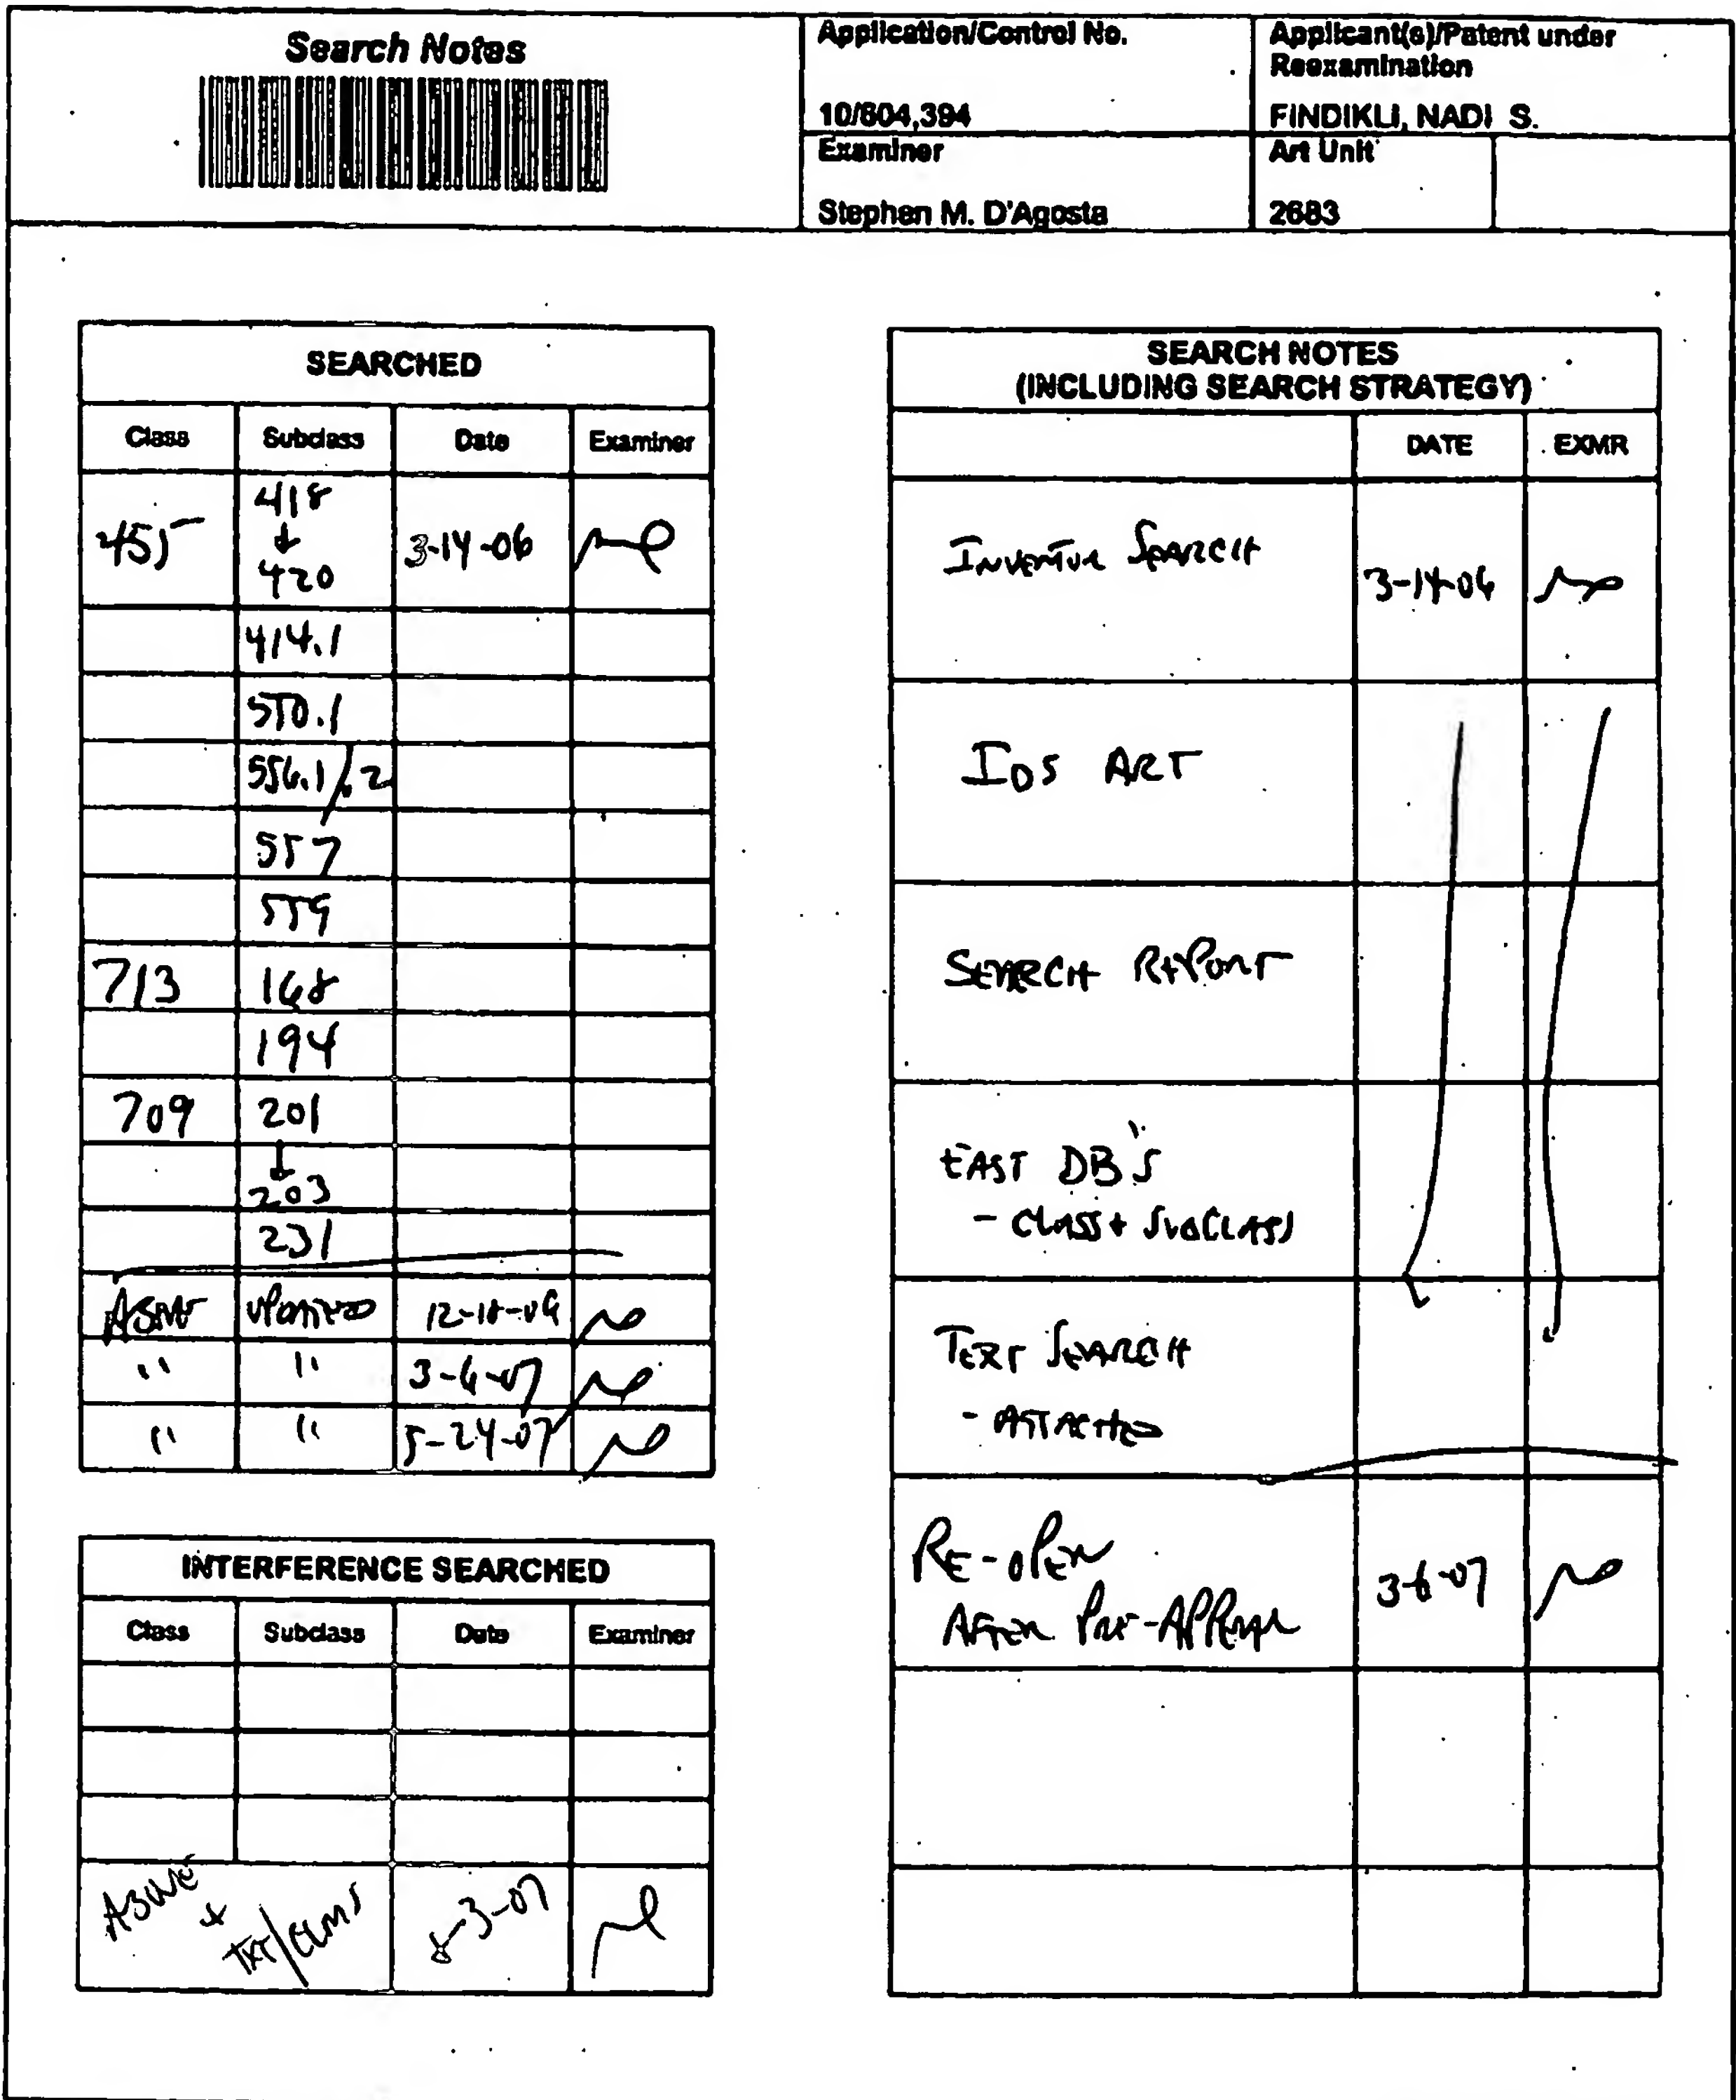 Search Notes
Application/Control No.
10/604,394
Applicant(s)/Patent under
Reexamination
FINDIKLI, NADI S.
Examiner
Stephen M. D'Agosta
Art Unit
2683
SEARCHED
Class Subclass Date Examiner
455 418 ↓ 420 3-14-06
414.1
550.1
556.1/.2
557
559
713 168
194
709 201
↓ 203
231
Above updated
" " 3-6-07
" " 5-24-07
INTERFERENCE SEARCHED
Class Subclass Date Examiner
Above + TXT/CLMS 8-3-07
SEARCH NOTES
(INCLUDING SEARCH STRATEGY)
DATE EXMR
INVENTOR SEARCH 3-14-06
IDS ART
SEARCH REPORT
EAST DB'S
- CLASS + SUBCLASS
TEXT SEARCH
- ATTACHED
RE-OPEN
AFTER PRE-APPEAL 3-6-07